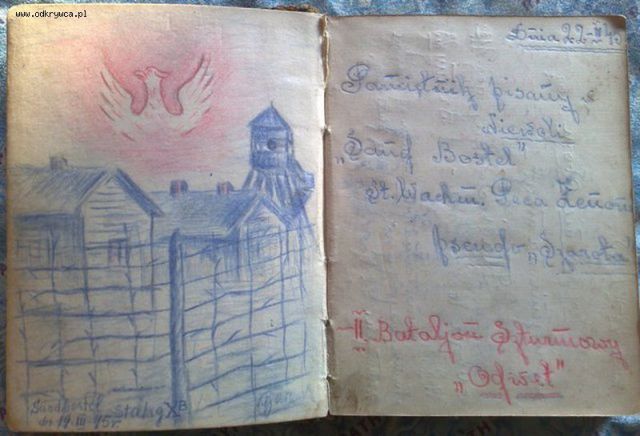 www.odkrywca.pl
Sandbostel Stalag XB
dn 19-III-45r.
Dnia 22-II 45
Pamiętnik pisany
w Niewoli
„Sand Bostel"
St. Wachm. Peca Zenon
pseudo „Szarota"
II Bataljon Szturmowy
„Odwet"